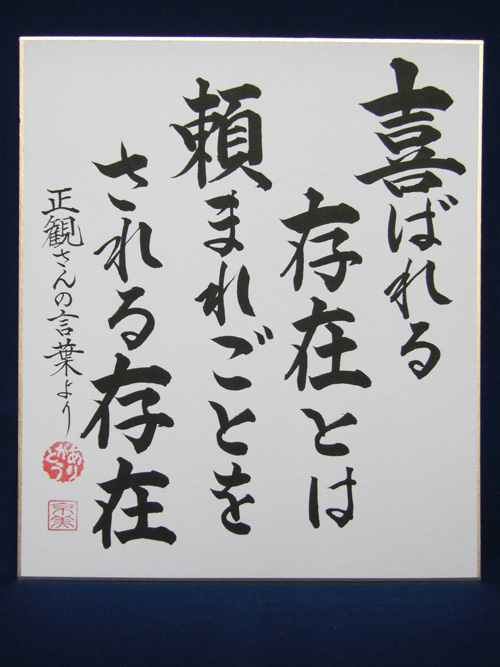 喜ばれる
存在とは
頼まれごとを
される存在
正観さんの言葉より
ありがとう